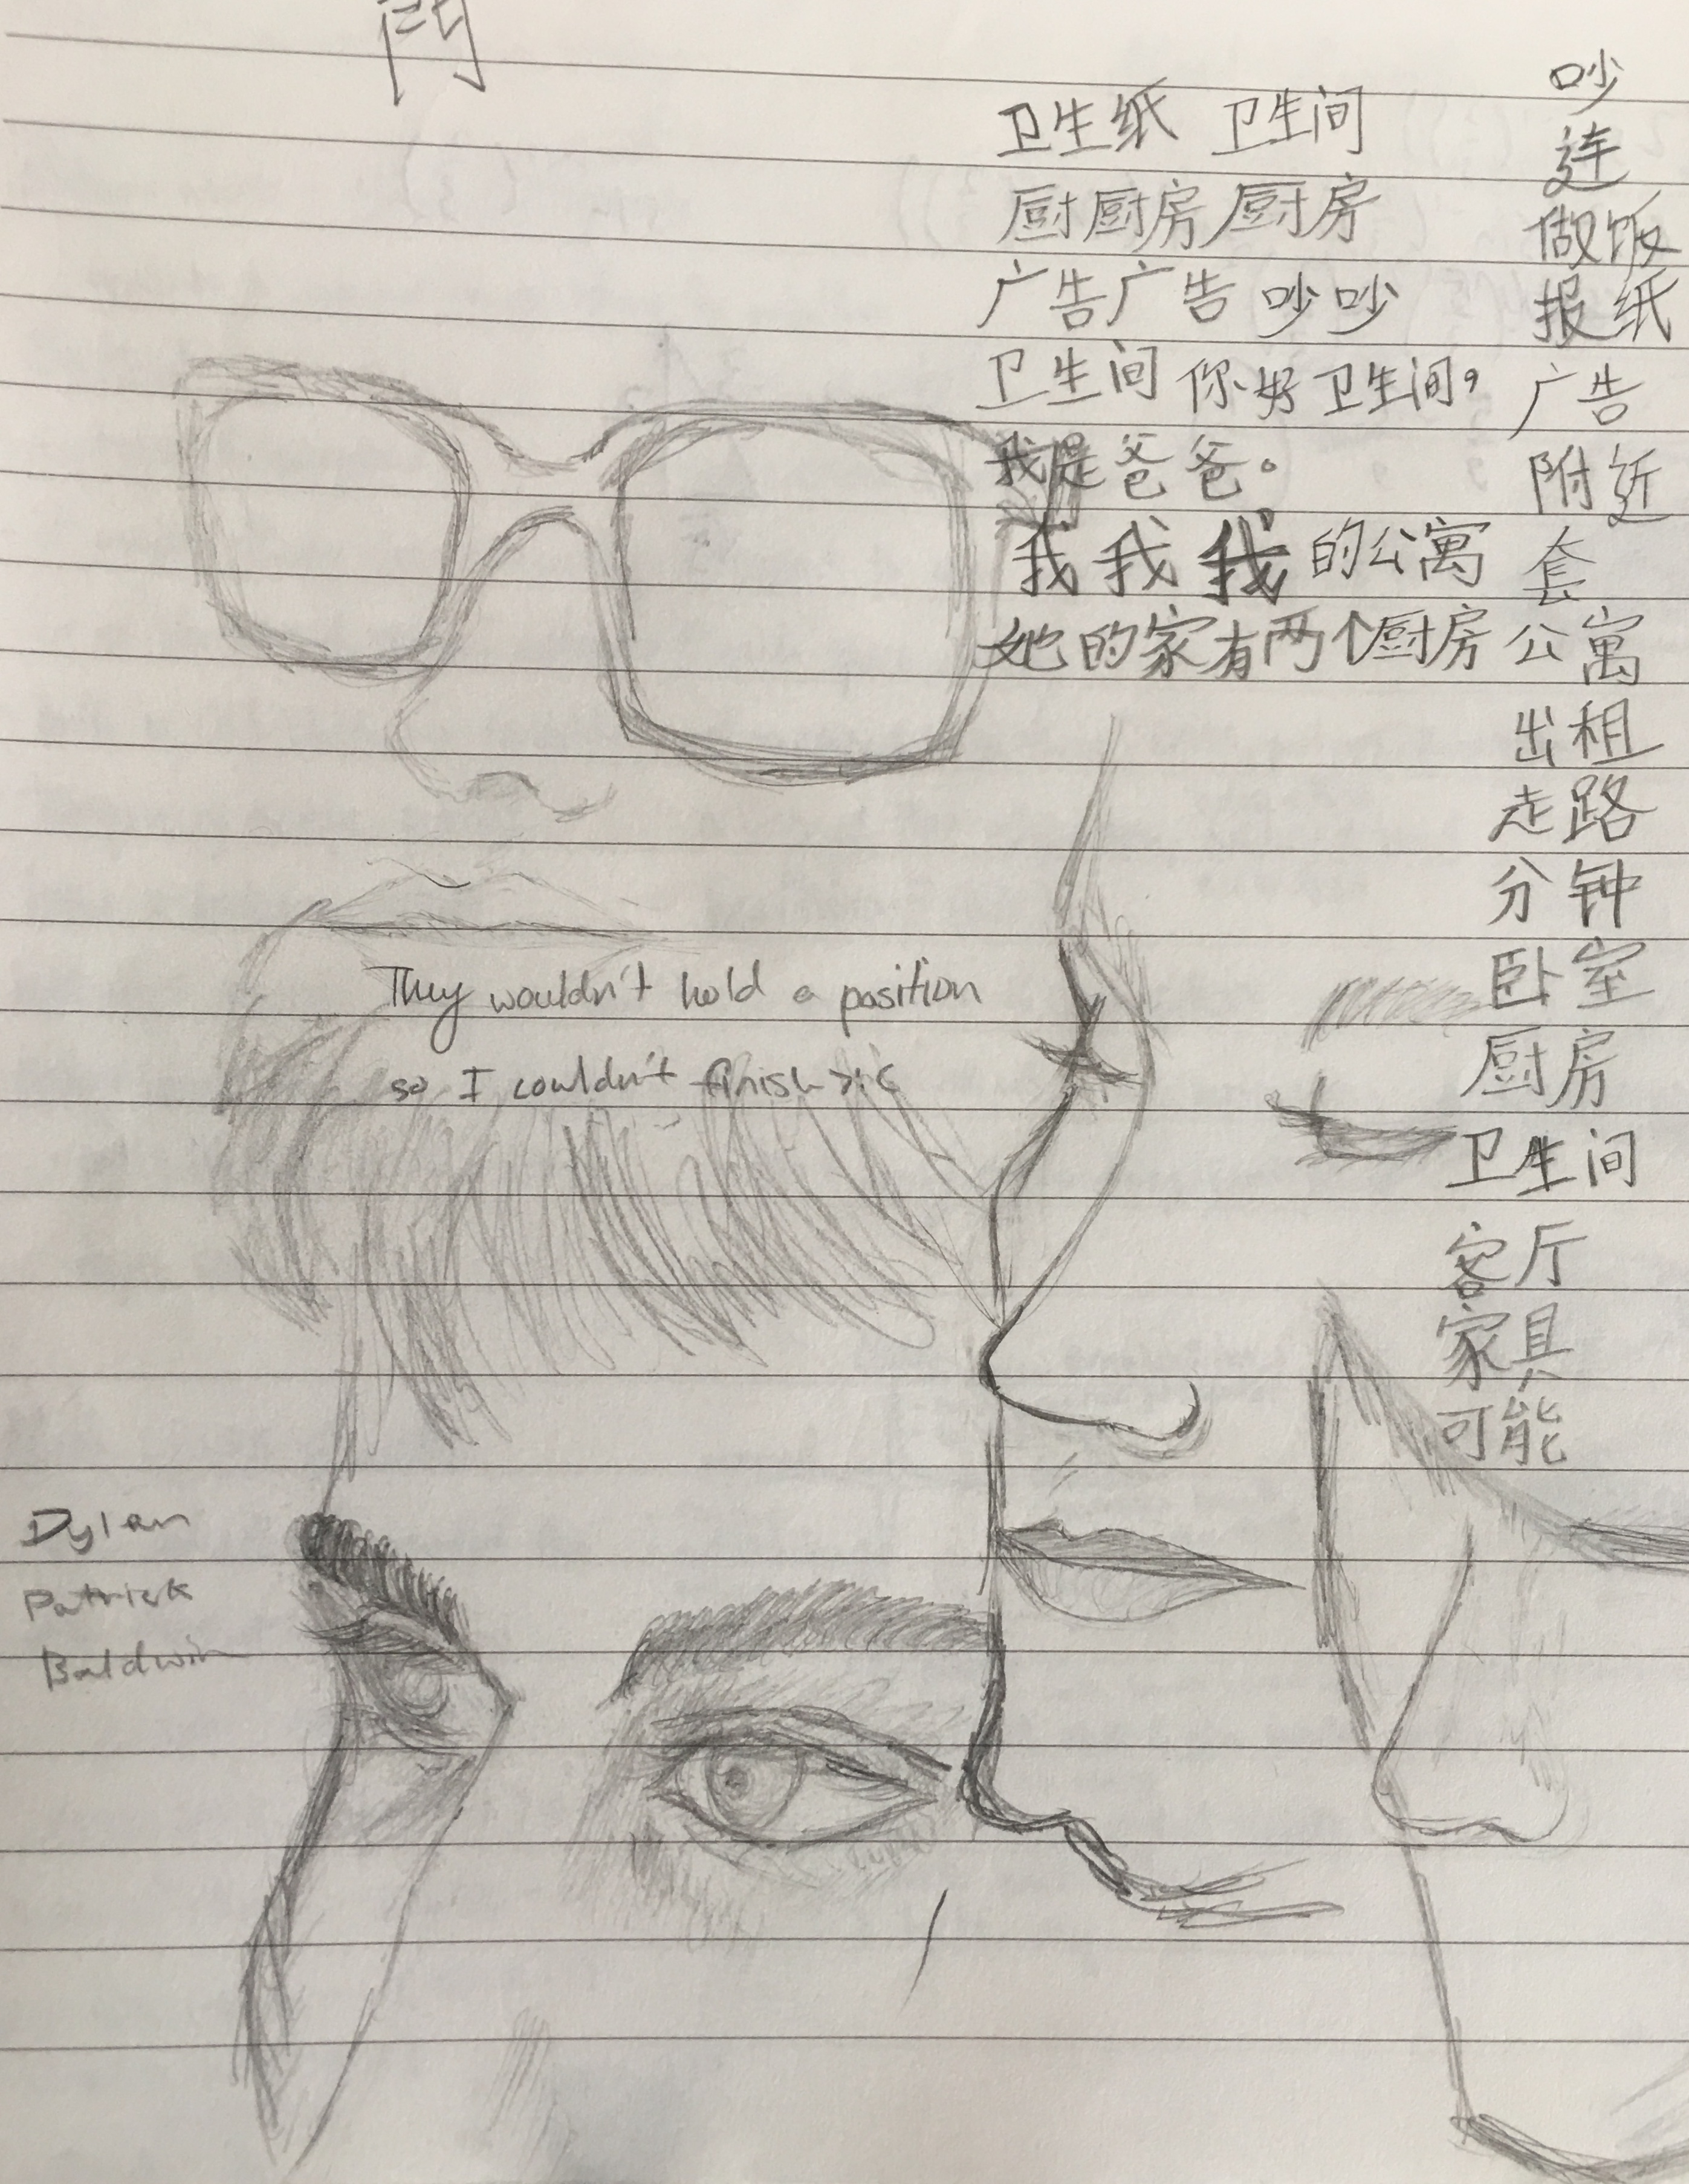 門
卫生纸 卫生间
厨厨房厨房
广告广告 吵吵
卫生间 你好卫生间，
我是爸爸。
我我我的公寓
她的家有两个厨房
吵
连
做饭
报纸
广告
附近
套
公寓
出租
走路
分钟
卧室
厨房
卫生间
客厅
家具
可能
They wouldn't hold a position
so I couldn't finish >:c
Dylan
Patrick
Baldwin